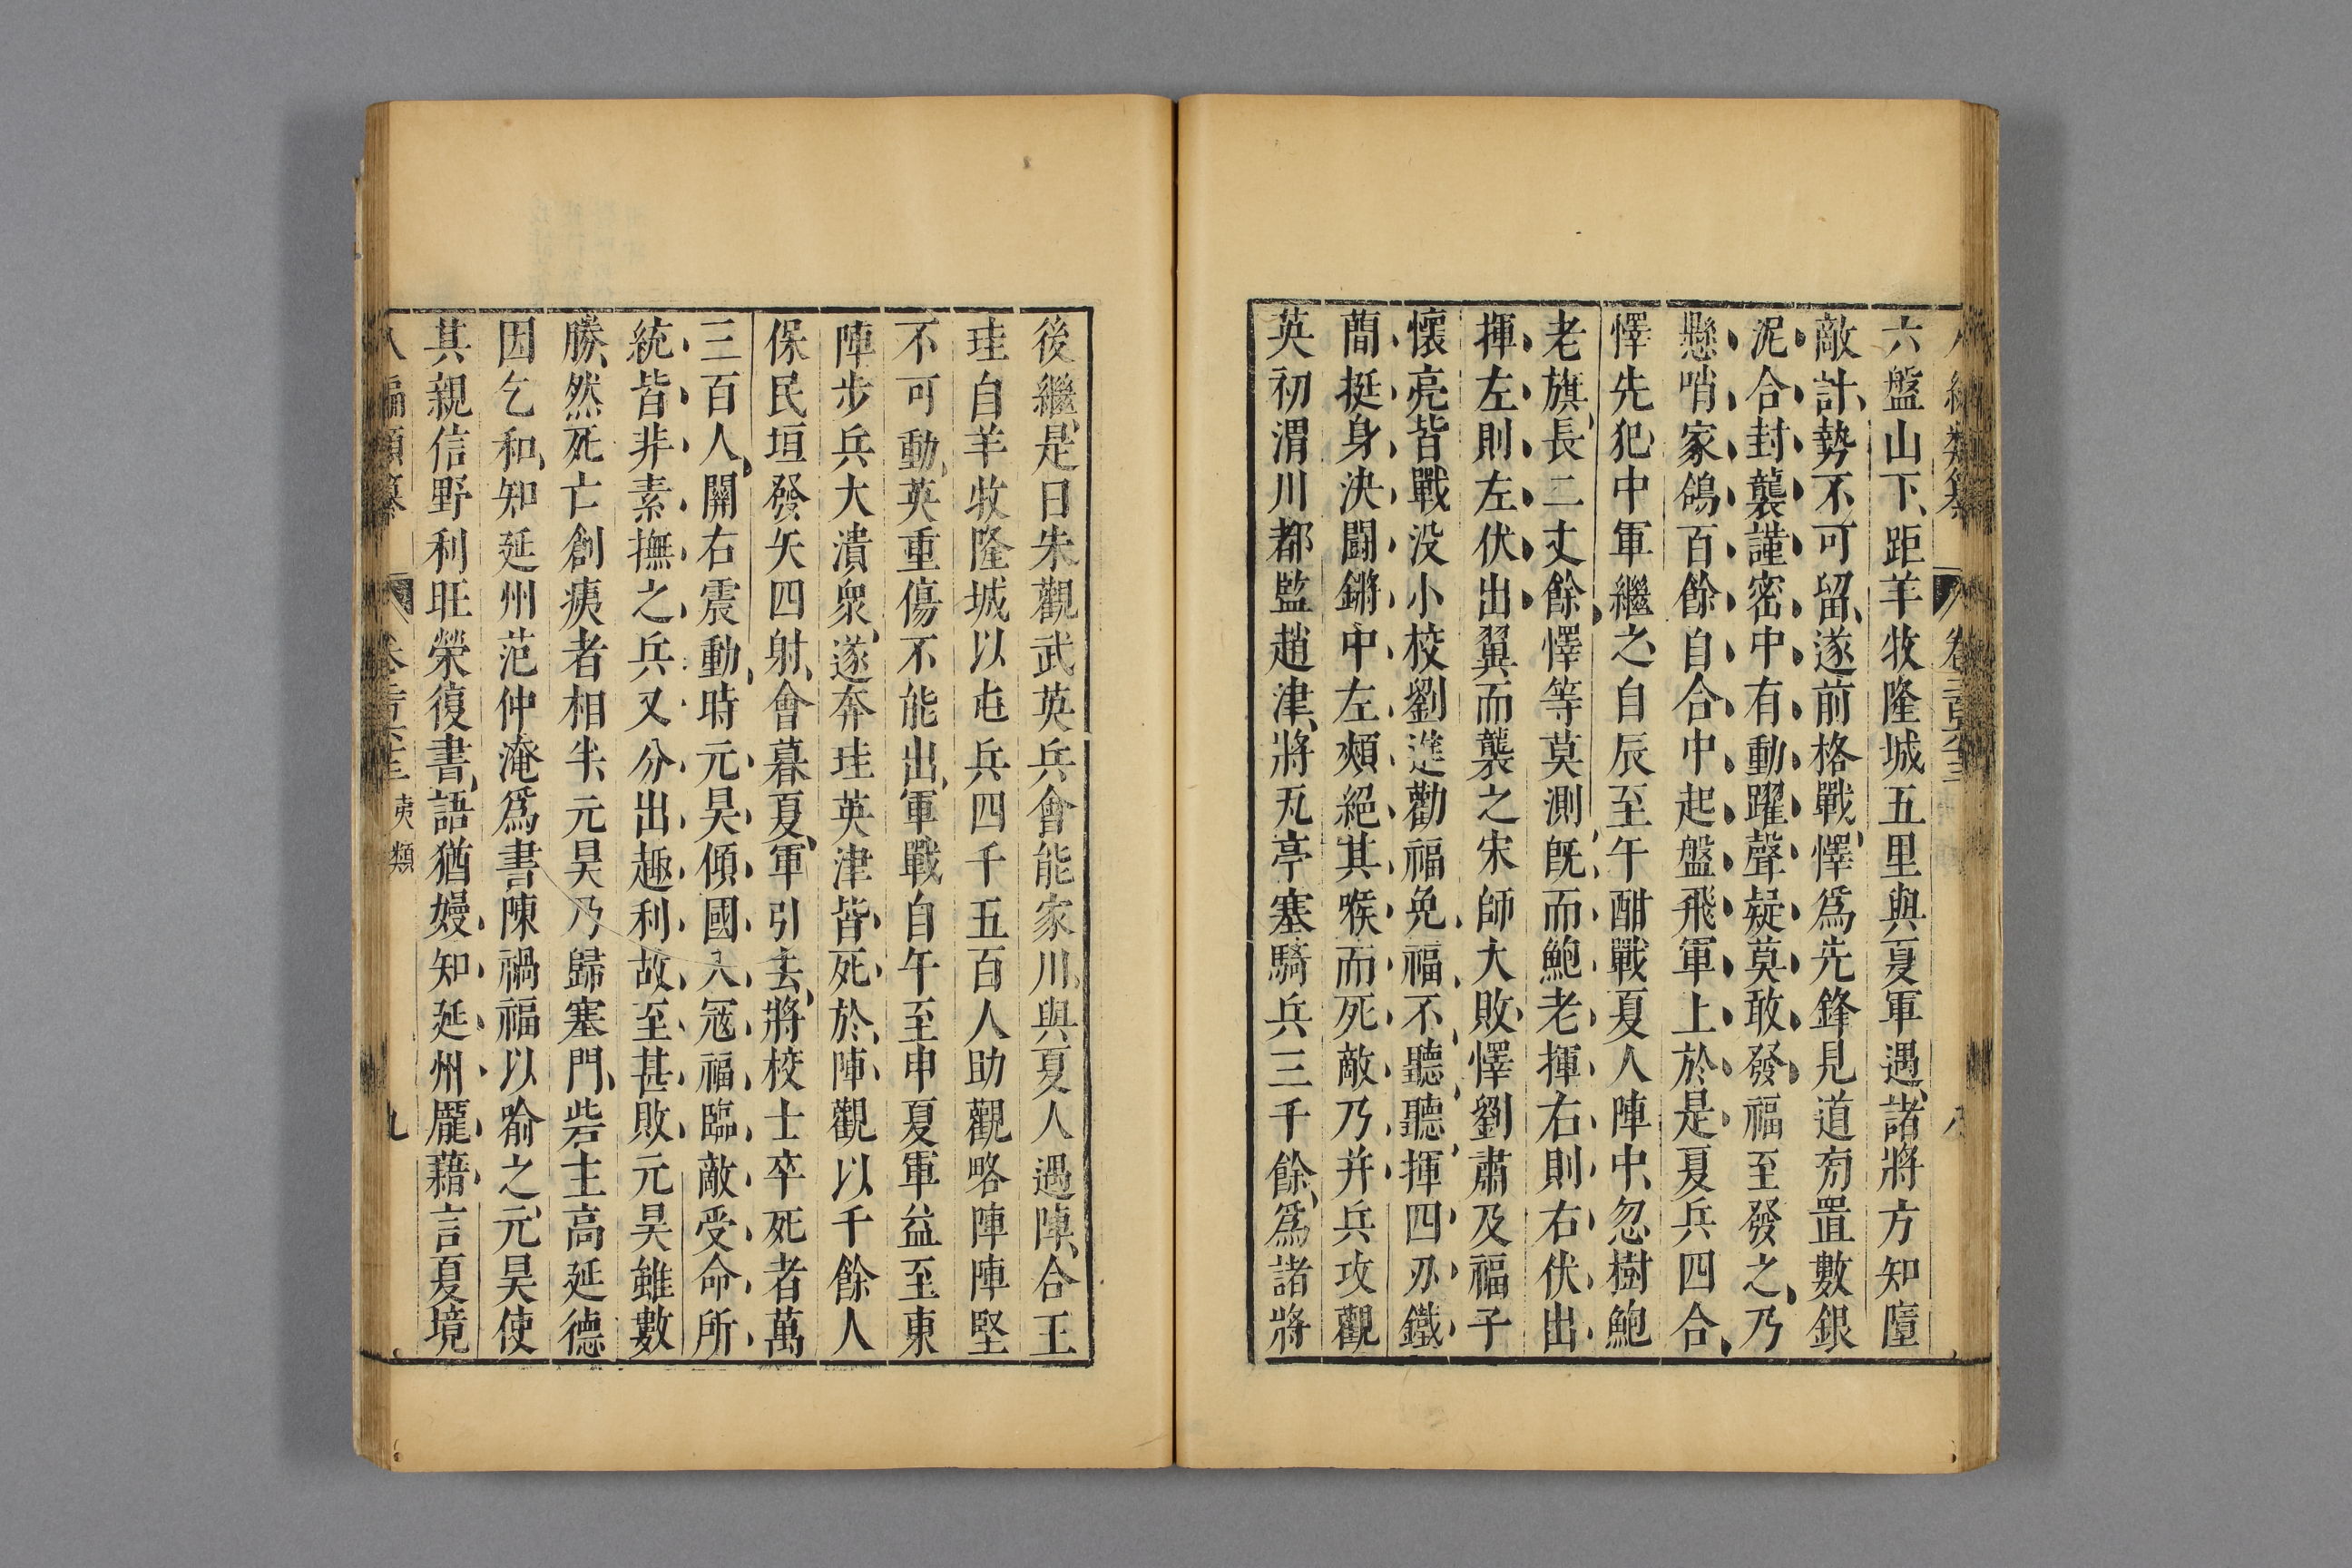 六盤山下、距羊牧隆城五里與夏軍遇、諸將方知墮
敵計、勢不可留、遂前格戰、懌爲先鋒見道旁置數銀
泥合封襲謹密中有動躍聲疑莫敢發福至發之、乃
懸哨家鴿百餘自合中起盤飛軍上於是夏兵四合、
懌先犯中軍繼之自辰至午酣戰夏人陣中、忽樹鮑
老旗、長二丈餘、懌等莫測既而鮑老揮右則右伏出
揮左則左伏出翼而襲之宋師大敗、懌劉肅及福子
懷亮皆戰没小校劉進勸福免、福不聽、聽揮四刃鐵
蕳挺身決鬪鏘中左頰絕其喉而死敵乃并兵攻觀
英初渭川都監趙津、將兀亭塞騎兵三千餘、爲諸將
後繼、是日朱觀武英兵會能家川、與夏人遇陣、合王
珪自羊牧隆城以屯兵四千五百人助觀略陣陣堅
不可動、英重傷不能出、軍戰自午至申夏軍益至東
陣步兵大潰衆、遂奔珪英津皆死於陣觀以千餘人
保民垣發矢四射、會暮夏、軍引去、將校士卒死者萬
三百人、關右震動、時元昊傾國入寇福臨敵受命所
統皆非素撫之兵又分出趣利故至甚敗元昊雖數
勝、然死亡創痍者相半、元昊乃歸塞門、砦主高延德
因乞和、知延州范仲淹爲書陳禍福以喻之、元昊使
其親信野利旺榮復書、語猶嫚知延州龐藉言夏境
八編類纂 夷類 九